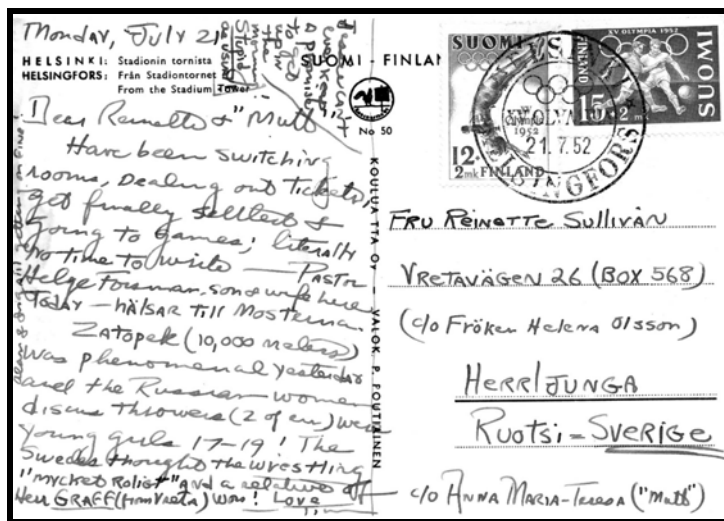 Monday, July 21
HELSINKI: Stadionin tornista
HELSINGFORS: Från Stadiontornet
From the Stadium Tower
SUOMI - FINLAND
No 50
Yesterday
a promise
to get
up in
the
morning!
Stupid
as usual
Dear Reinette & "Mutt"
Have been switching
rooms, Dealing out tickets,
get finally settled &
going to games; literally
no time to write — Pastor
Helge Forsman, son & wife here
today - hälsar till Mosterna.
Zatopek (10,000 meters)
was phenomenal yesterday
and the Russian women
discus throwers (2 of em) were
young gals 17-19! The
Swedes thought the wrestling
"mycket rolist" and a relative of
Herr GRAFF (from Vreta) won! Love
Tim
getting on fine!
KOULUA TTA OY — VALOK. P. POUTIAINEN
SUOMI
XV
Olympia
1952
12+
2mk FINLAND
XV OLYMPIA 1952
FINLAND
SUOMI
15
+2 mk
XV OLYMPIA
21.7.52
HELSINGFORS
FRU REINETTE SULLIVAN
VRETAVÄGEN 26 (BOX 568)
(c/o Fröken Helena Olsson)
HERRLJUNGA
RUOTSI = SVERIGE
c/o ANNA MARIA-TERESA ("Mutt")